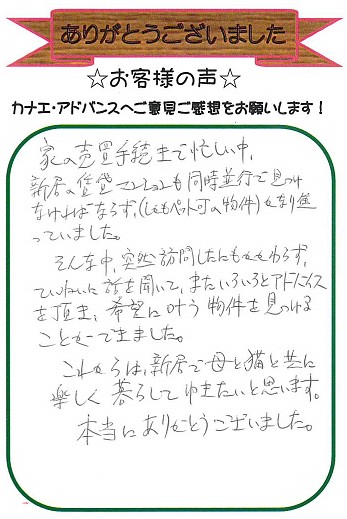 ありがとうございました
☆お客様の声☆
カナエ・アドバンスへご意見ご感想をお願いします！
家の売買手続きで忙しい中、
新居の賃貸マンションも同時並行で見つけ
なければならず、(しかもペット可の物件)かなり迷
っていました。
そんな中、突然訪問したにもかかわらず、
ていねいに話を聞いて、またいろいろとアドバイス
を頂き、希望に叶う物件を見つける
ことができました。
これからは、新居で母と猫と共に
楽しく暮らしてゆきたいと思います。
本当にありがとうございました。